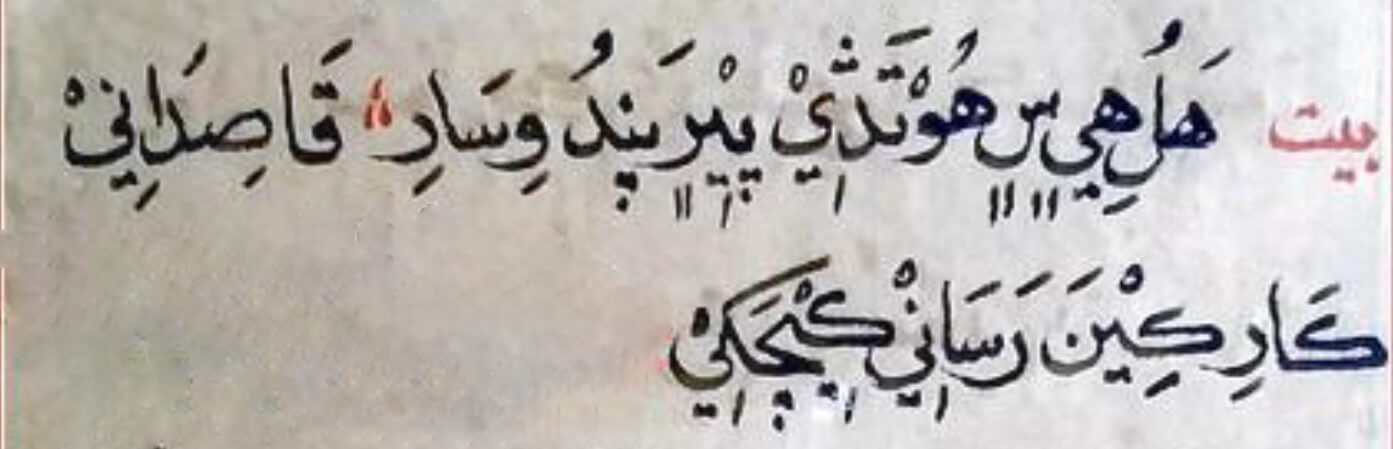 بيت هَلُ هِيِ سِ هُوْتَ ڎِيْ پِيْرِ پَنِدُ وِسَارِ قَاصِدَانِيْ
كَارِ كِيْنَ رَسَانِيْ كيْچَكِيْ